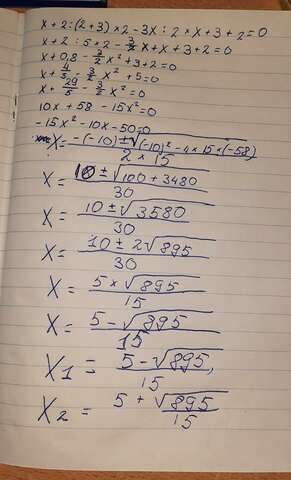 x+2:(2+3)×2-3x:2×x+3+2=0
x+2:5×2-3/2x×x+3+2=0
x+0,8-3/2x²+3+2=0
x+4/5-3/2x²+5=0
x+29/5-3/2x²=0
10x+58-15x²=0
-15x²-10x-50=0
x=-(-10)±√(-10)²-4×15×(-58)/2×15
x=10±√100+3480/30
x=10±√3580/30
x=10±2√895/30
x=5×√895/15
x=5-√895/15
x1=5-√895,/15
x2=5+√895/15